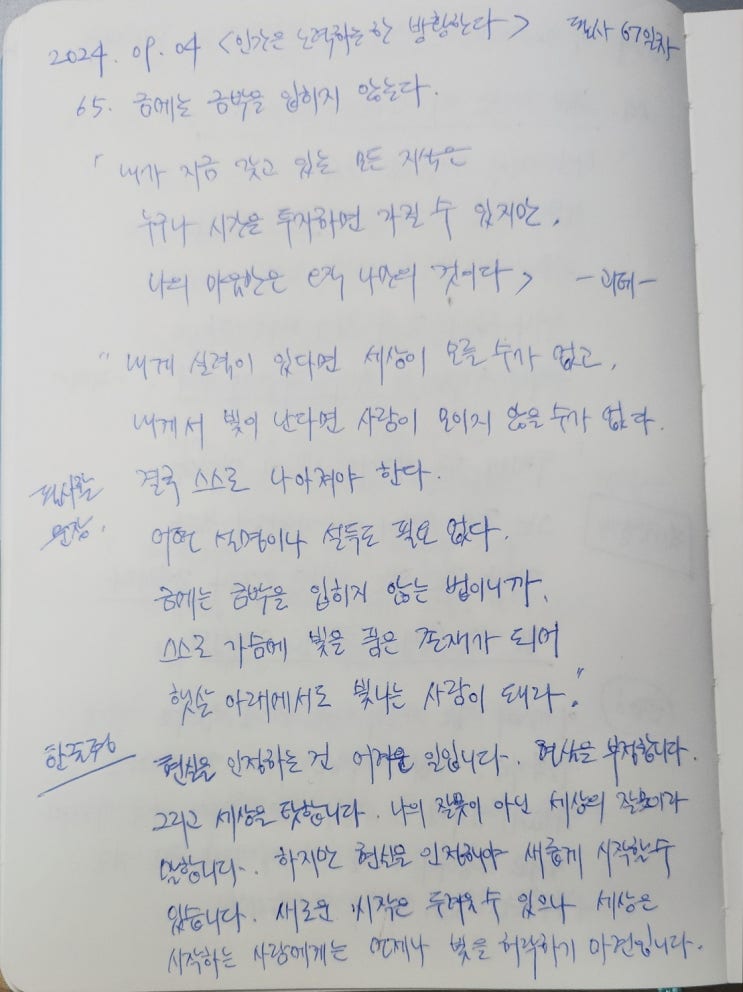 2024. 09. 04 <인간은 노력하는 한 방황한다> 필사 67일차
65. 금에는 금박을 입히지 않는다.
" 내가 지금 갖고 있는 모든 지식은
누구나 시간을 투자하면 가질 수 있지만,
나의 마음만은 오직 나만의 것이다> -괴테-
" 내게 실력이 있다면 세상이 모를 수가 없고,
내게서 빛이 난다면 사람이 모이지 않을 수가 없다.
결국 스스로 나아져야 한다.
필사한
문장.
어떤 설명이나 설득도 필요 없다.
금에는 금박을 입히지 않는 법이니까,
스스로 가슴에 빛을 품은 존재가 되어
햇살 아래에서도 빛나는 사람이 돼라."
한줄평
현실을 인정하는 건 어려운 일입니다. 현실을 부정합니다.
그리고 세상을 탓합니다. 나의 잘못이 아닌 세상의 잘못이라
말합니다. 하지만 현실을 인정해야 새롭게 시작할 수
있습니다. 새로운 시작은 두려울 수 있으나 세상은
시작하는 사람에게는 언제나 빛을 허락하기 마련입니다.